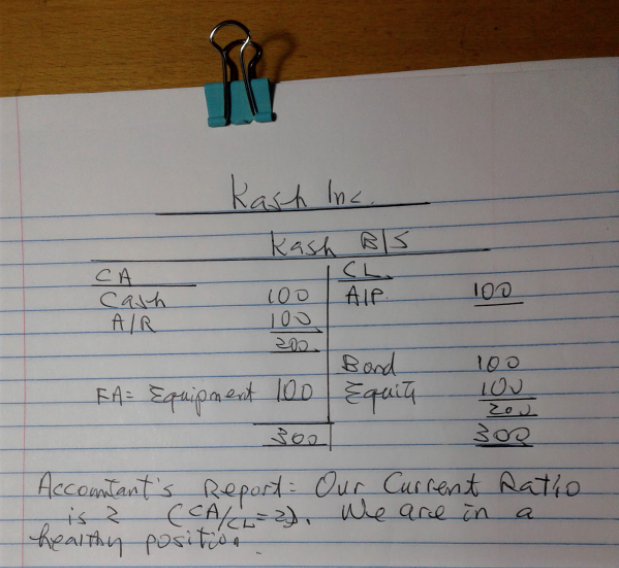 Kash Inc.
Kash B/S
CA CL
Cash 100 A/P 100
A/R 100
200
Bond 100
FA= Equipment 100 Equity 100
200
300 300
Accountant's Report: Our Current Ratio
is 2 (CA/CL=2). We are in a
healthy position.